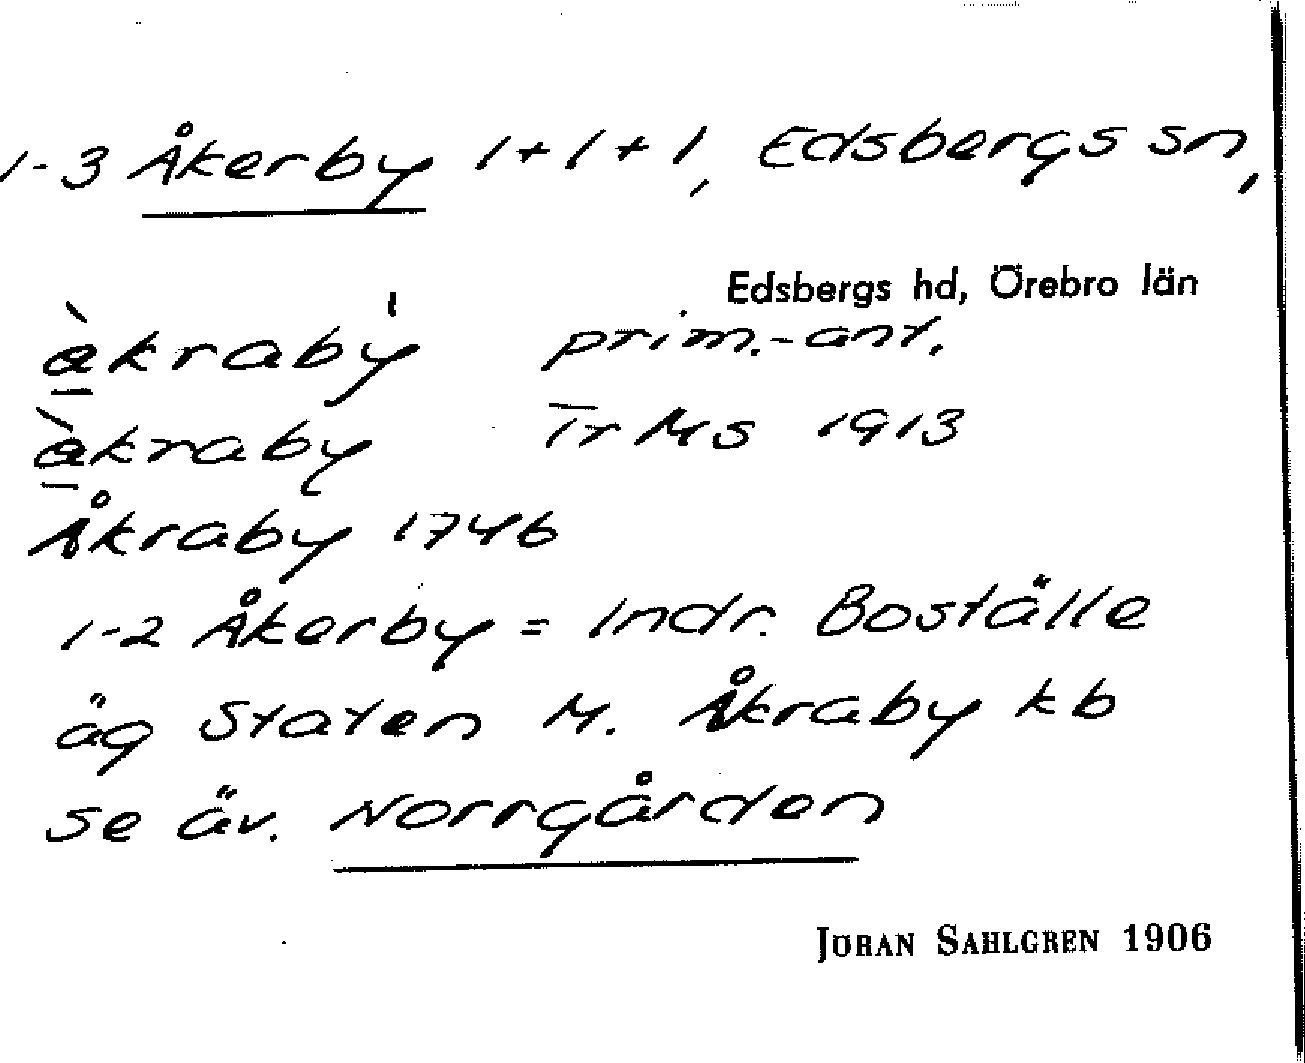 1-3 Åkerby 1+1+1, Edsbergs sn,
Edsbergs hd, Örebro län
àkraby̍ prim.-ant.
àkraby Tr Ms 1913
Åkraby 1746
1-2 Åkerby = Indr. Boställe
äg Staten M. Åkraby kb
se äv. Norrgården
JÖRAN SAHLGREN 1906